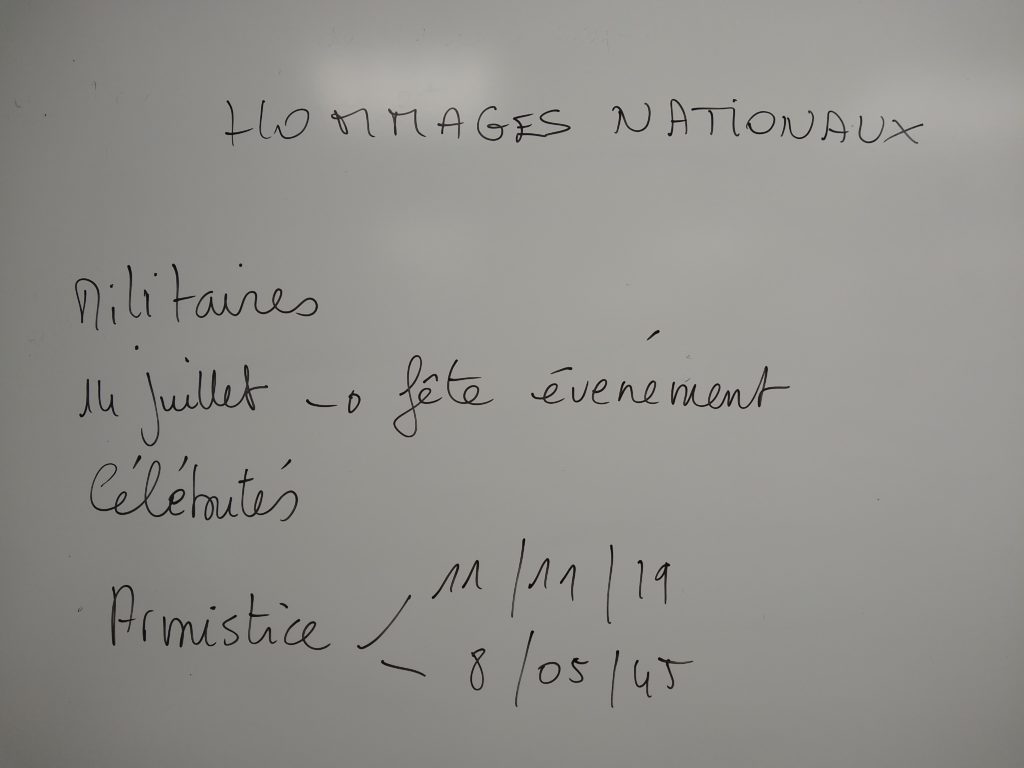 HOMMAGES NATIONAUX
Militaires
14 juillet → fête événement
Célébrités
Armistice 11/11/19
8/05/45